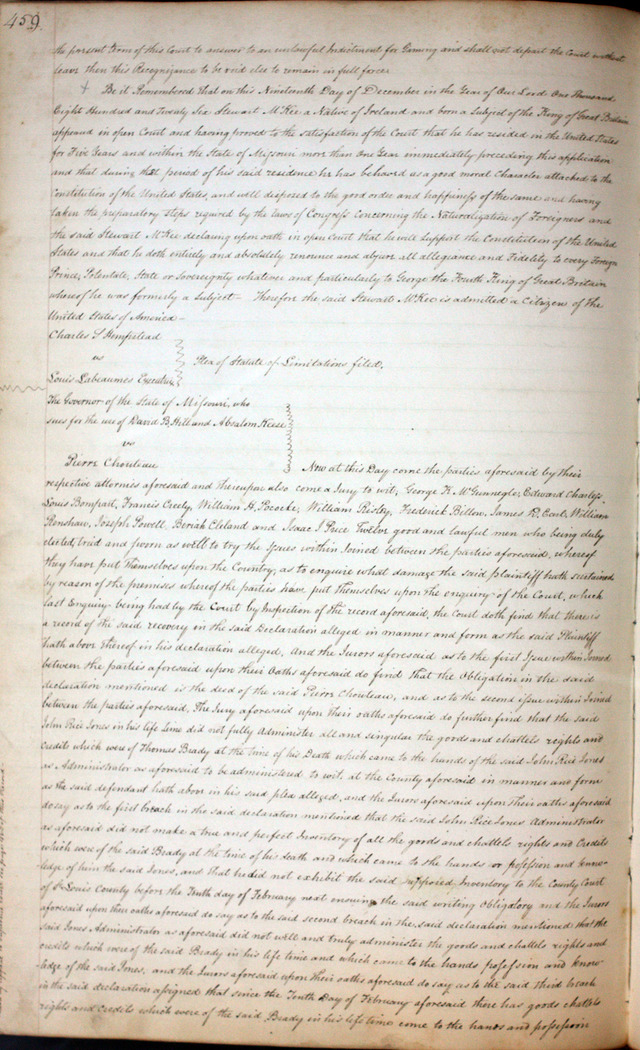 459.
the present Term of this Court to answer to an unlawful Indictment for Gaming and shall not depart the Court without
leave then this Recognizance to be void else to remain in full force
+ Be it Remembered that on this Nineteenth Day of December in the Year of Our Lord One Thousand
Eight Hundred and Twenty Six Stewart McKee a Native of Ireland and born a Subject of the King of Great Britain
appeared in open Court and having proved to the satisfaction of the Court that he has resided in the United States
for Five Years and within the State of Missouri more than One Year immediately preceding this application
and that during that period of his said residence he has behaved as a good moral Character attached to the
Constitution of the United States, and well disposed to the good order and happiness of the same and having
taken the preparatory steps required by the laws of Congress concerning the Naturalization of Foreigners and
the said Stewart McKee declaring upon oath in open Court that he will Support the Constitution of the United
States and that he doth entirely and absolutely renounce and abjure all allegiance and Fidelity to every Foreign
Prince, Potentate, State or Sovereignty whatever and particularly to George the Fourth King of Great Britain
whereof he was formerly a Subject - Therefore the said Stewart McKee is admitted a Citizen of the
United States of America -
Charles S Hempstead
vs
Plea of Statute of Limitations filed.
Louis Labeaumes Executrix
The Governor of the State of Missouri, who
sues for the use of David B. Hill and Absalom Keese
vs
Pierre Chouteau
Now at this Day come the parties aforesaid by their
respective attornies aforesaid and thereupon also come a Jury to wit, George K. McGunnegle, Edward Charless,
Louis Bompart, Francis Creely, William H. Pococke, William Risley, Frederick Billon, James R. Earl, William
Renshaw, Joseph Powell, Beriah Cleland and Isaac I Price Twelve good and lawful men who being duly
elected, tried and sworn as well to try the Issues within Joined between the parties aforesaid, whereof
they have put Themselves upon the Country, as to enquire what damage the said plaintiff hath sustained
by reason of the premises whereof the parties have put Themselves upon the enquiry of the Court, which
last Enquiry being had by the Court by Inspection of the record aforesaid, the Court doth find that there is
a record of the said recovery in the said Declaration alleged in manner and form as the said Plaintiff
hath above thereof in his declaration alleged, And the Jurors aforesaid as to the first Issue within Joined
between the parties aforesaid upon their Oaths aforesaid do find that the Obligation in the said
declaration mentioned is the deed of the said Pierre Chouteau, and as to the second issue within Joined
between the parties aforesaid, The Jury aforesaid upon Their oaths aforesaid do further find that the said
John Rice Jones in his life time did not fully Administer all and singular the goods and chattels rights and
Credits which were of Thomas Brady at the time of his Death which came to the hands of the said John Rice Jones
as Administrator as aforesaid to be administered to wit, at the County aforesaid in manner and form
as the said defendant hath above in his said plea alleged, and the Jurors aforesaid upon Their oaths aforesaid
do say as to the first breach in the said declaration mentioned that the said John Rice Jones Administrator
as aforesaid did not make a true and perfect Inventory of all the goods and chattels rights and Credits
which were of the said Brady at the time of his death and which came to the hands or possession and know-
ledge of him the said Jones, and that he did not exhibit the said supposed Inventory to the County Court
of St Louis County before the Tenth day of February next ensuing the said writing Obligatory and the Jurors
aforesaid upon their oaths aforesaid do say as to the said second breach in the said declaration mentioned that the
said Jones Administrator as aforesaid did not well and truly administer the goods and chattels rights and
credits which were of the said Brady in his life time and which came to the hands possession and know-
ledge of the said Jones, and the Jurors aforesaid upon their oaths aforesaid do say as to the said third breach
in the said declaration assigned that since the Tenth Day of February aforesaid there has goods chattels
rights and credits which were of the said Brady in his life time come to the hands and possession